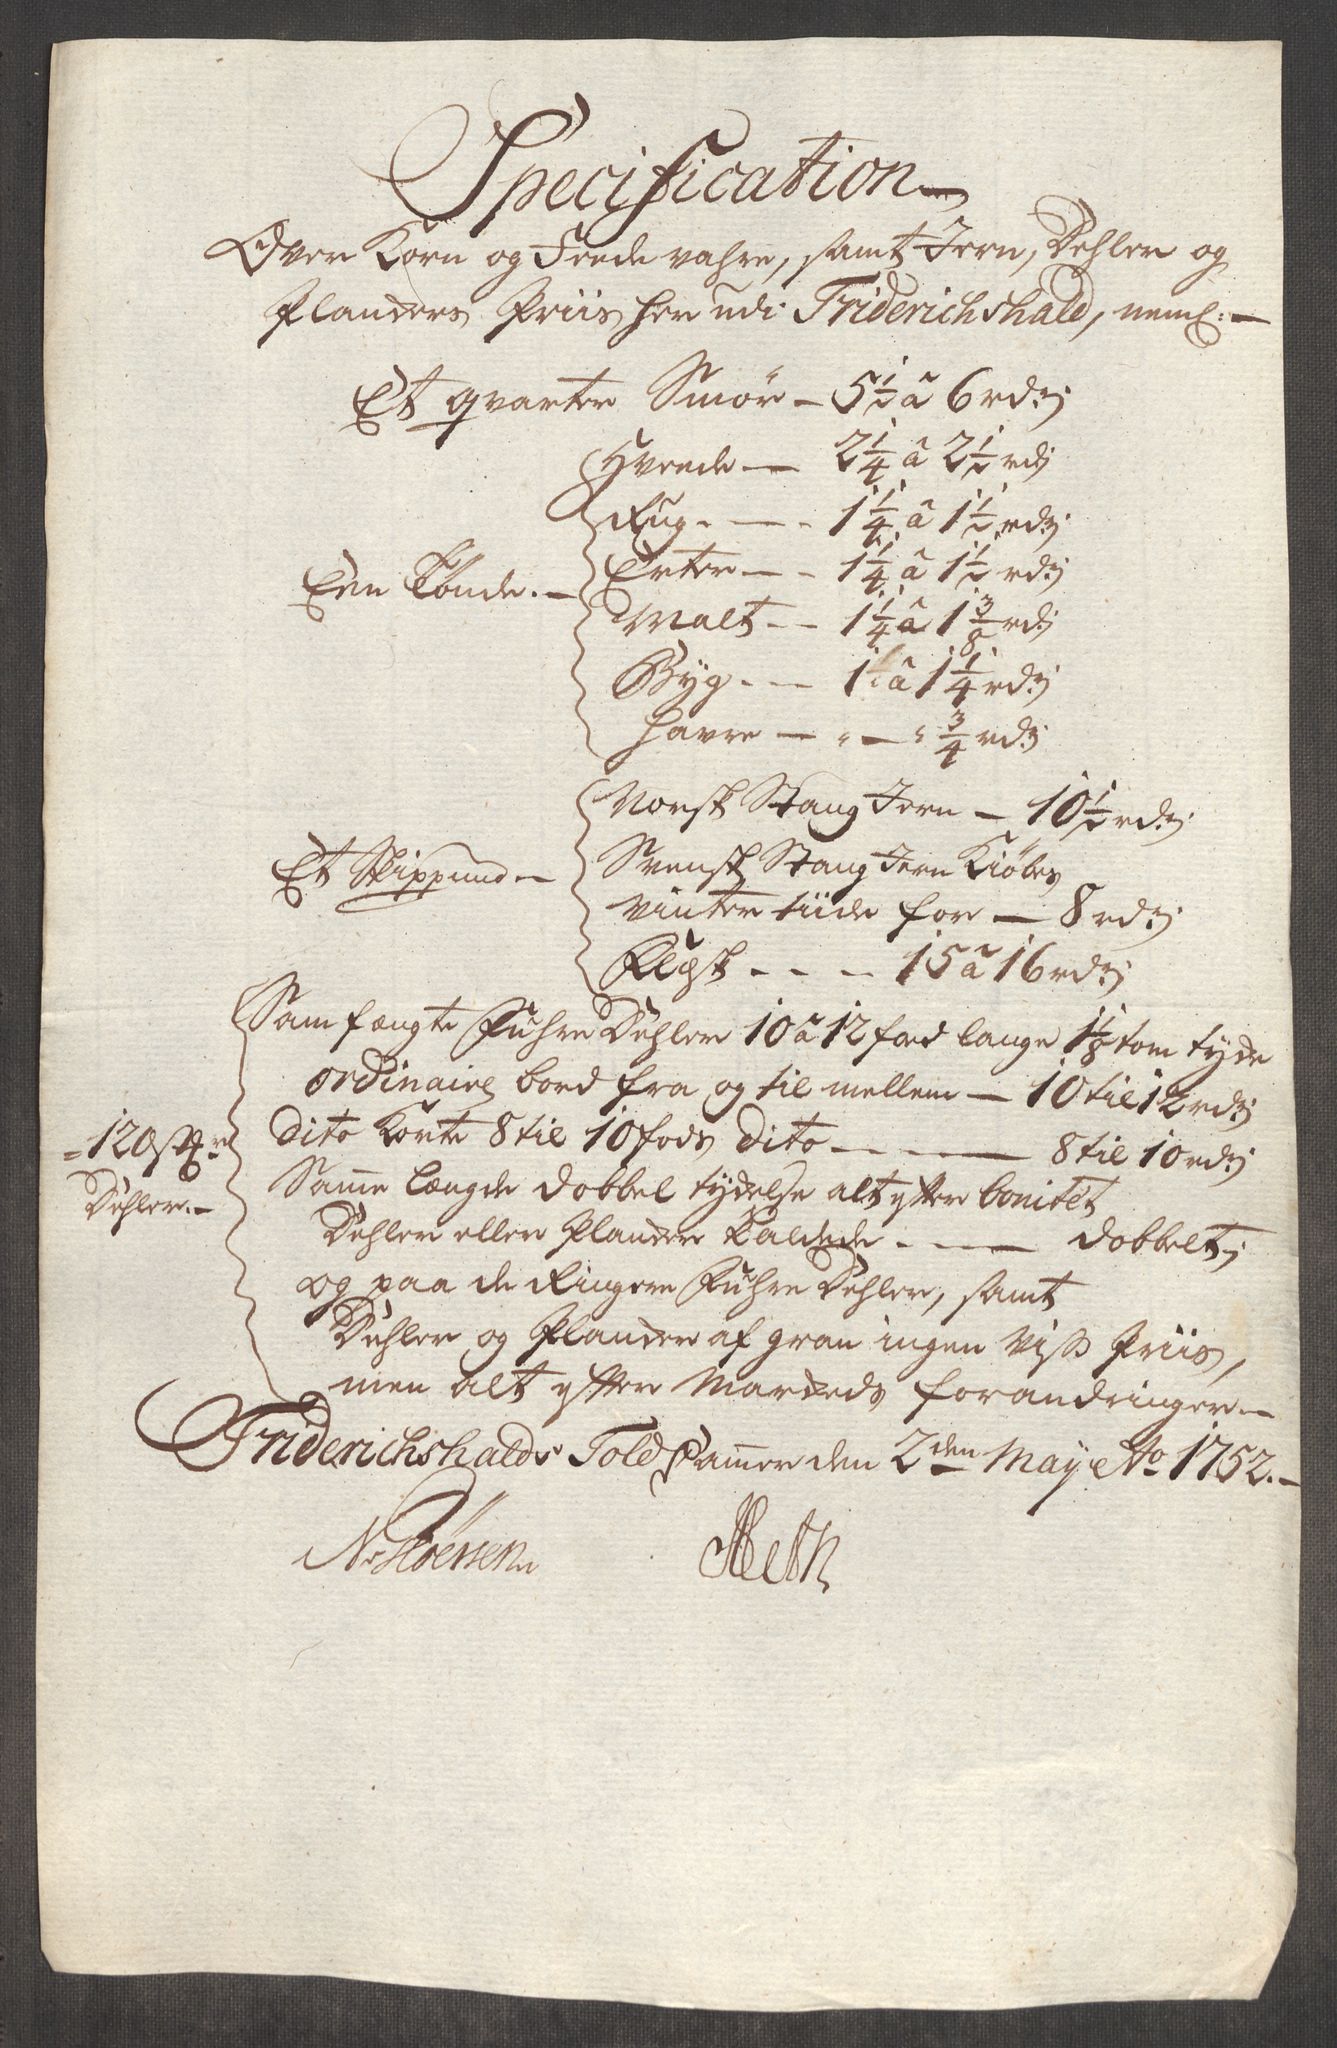 Specification
Over Korn og Feede vahre, samt Jern, Dehler og
Planckers Priis her udi Friderichshald, neml:
Et qvarter Smør 5½ â 6 rd:
Een Tønde.
Hveede 2¼ â 2½ rd:
Rug 1¼ â 1½ rd:
Erter 1¼ â 1½ rd:
Malt 1¼ â 1⅜ rd:
Byg 1 â 1¼ rd:
Havre ¾ rd:
Et Skippund
Norsk Stang Jern 10½ rd:
Svensk Stang Jern Kiøbes
vinter tiide for 8 rd:
Flesk 15 â 16 rd:
120 st.
Dehler.
Samfængte Fuhre Dehler 10 â 12 fod lange 1⅛ tom tyde
ordinaire bord fra og til mellem 10 til 12 rd:
Dito Korte 8 til 10 fods Dito 8 til 10 rd:
Samme længde dobbel tydelse alt efter bonitet
Dehler eller Plancker kaldede dobbelt;
og paa de Ringere Fuhre Dehler, samt
Dehler og Plancker af gran ingen viss Priis,
men alt efter Markeds forandringer.
Friderichshalds Told Cammer den 2den May Ao 1752.